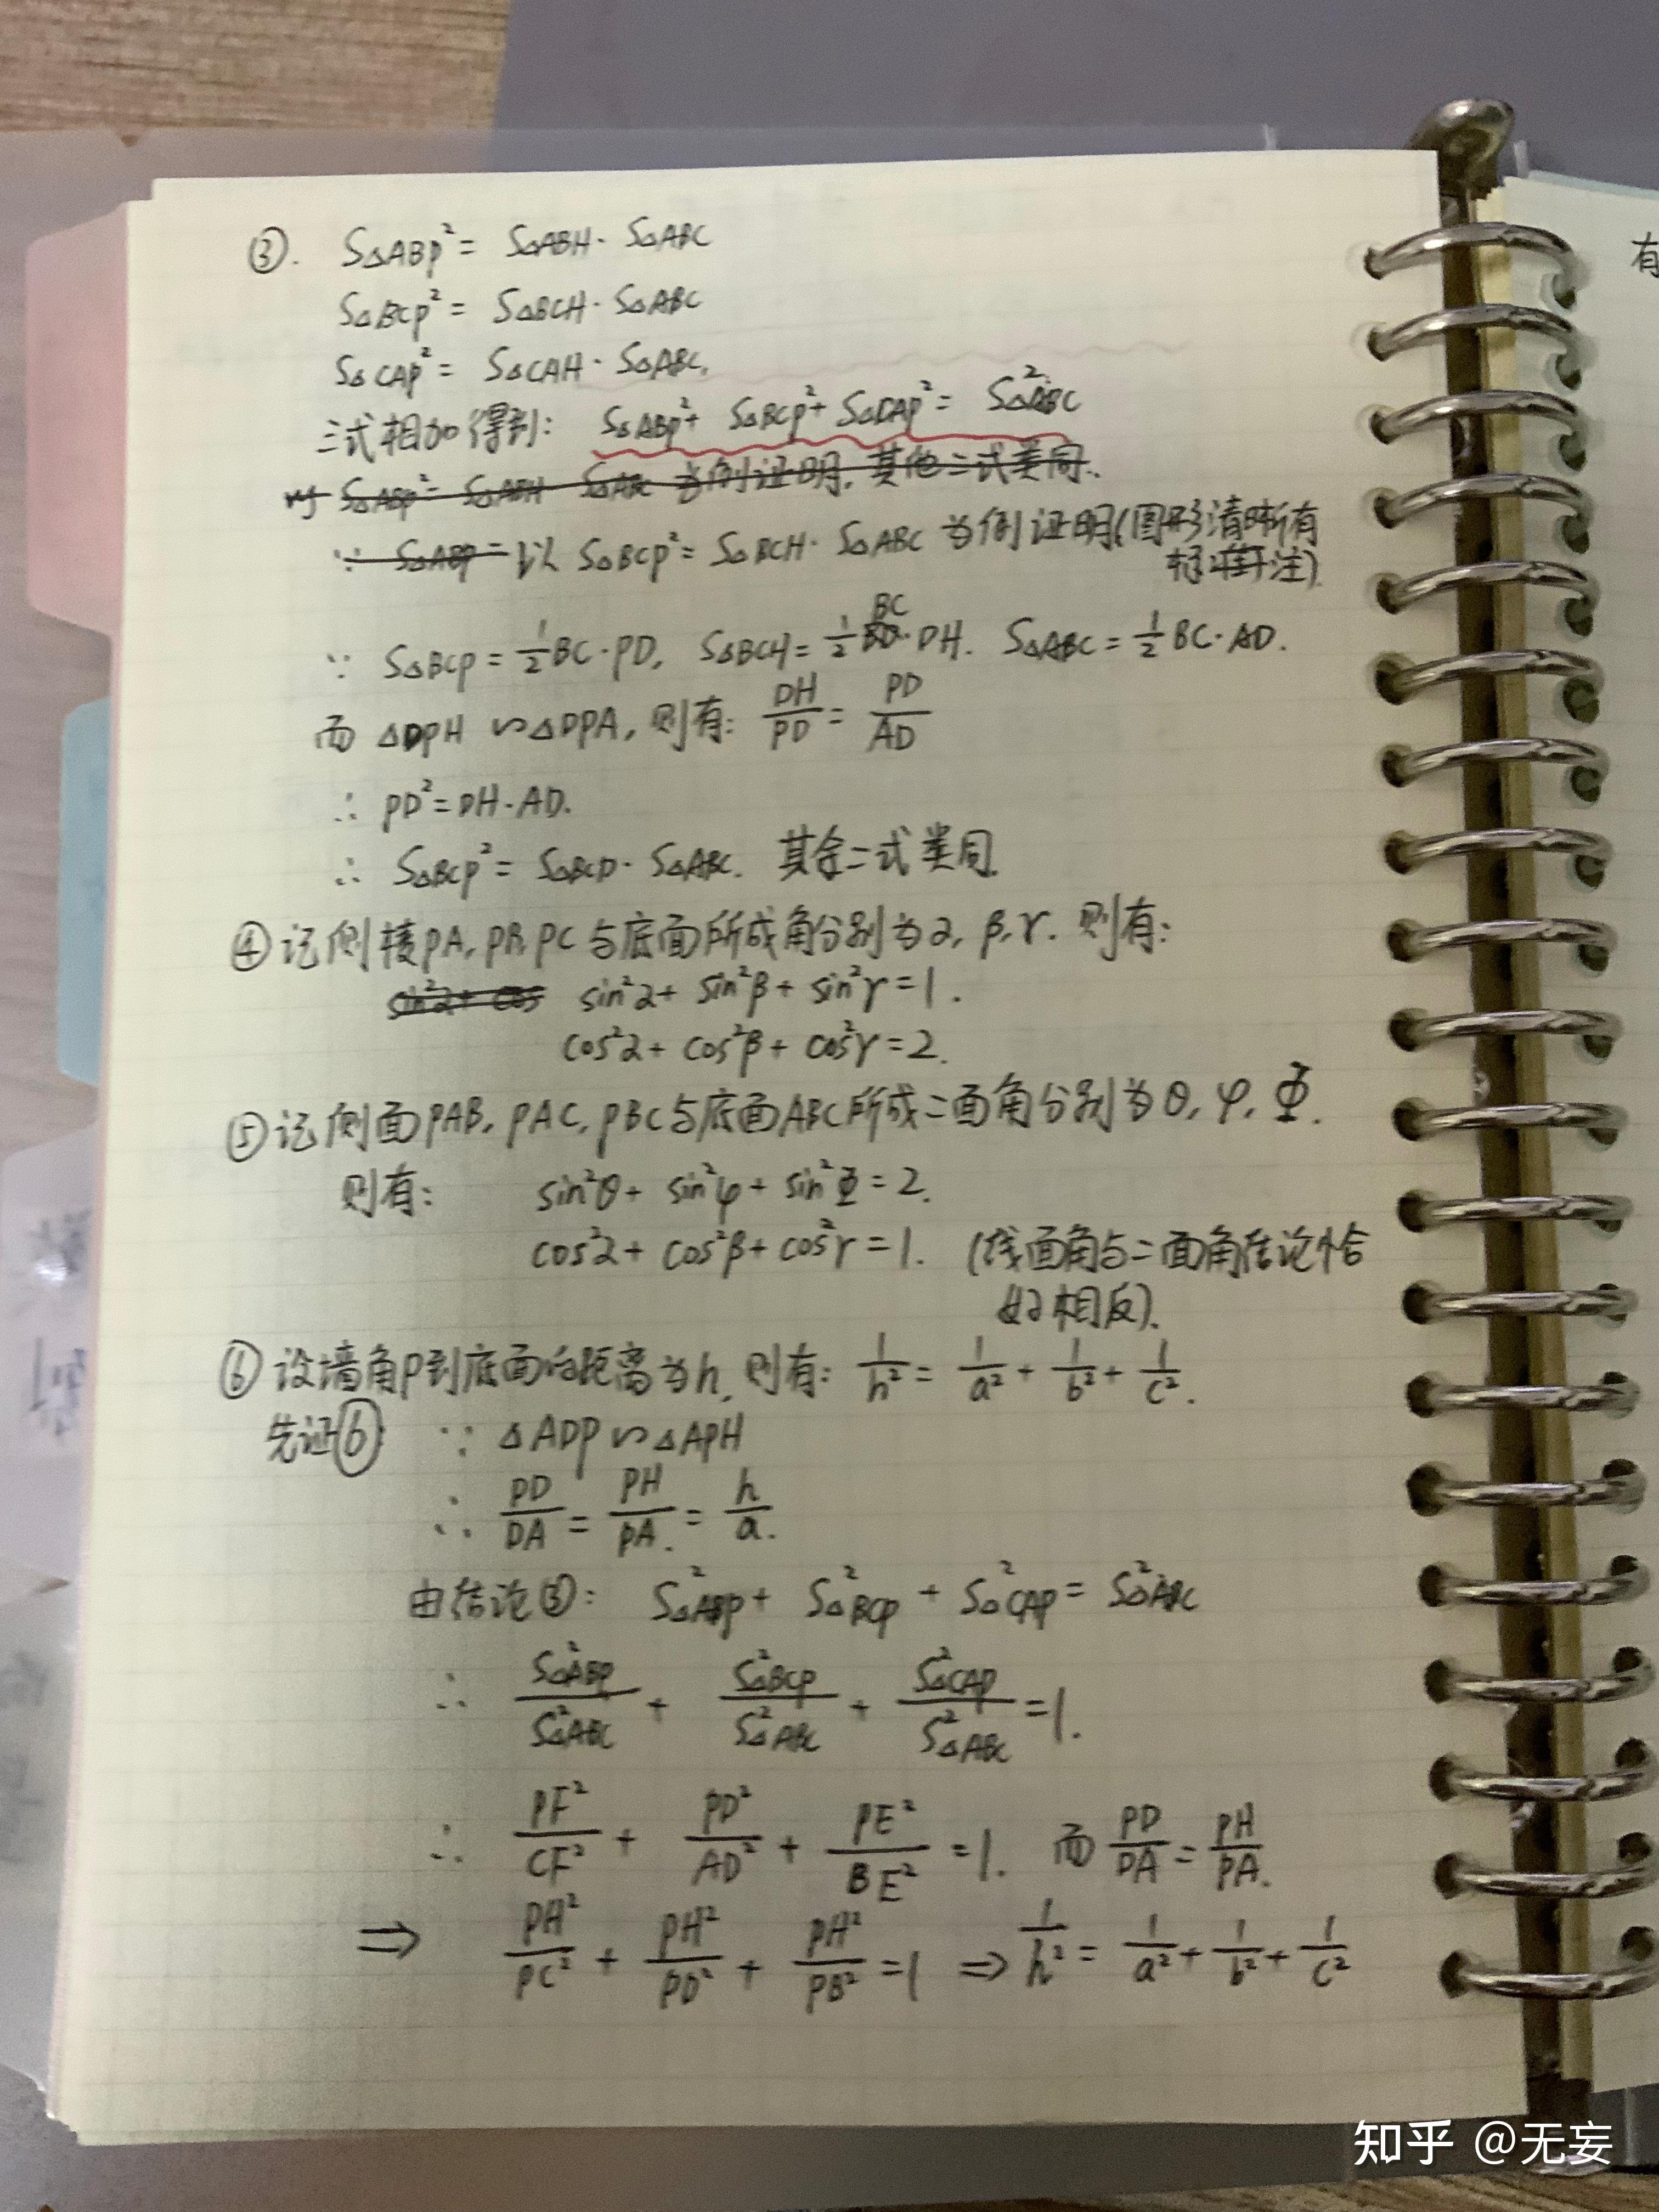 ③. S△ABP² = S△ABH · S△ABC
S△BCP² = S△BCH · S△ABC
S△CAP² = S△CAH · S△ABC.
三式相加得到: S△ABP² + S△BCP² + S△CAP² = S²△ABC
S△ABP² = S△ABH S△ABC 当例证明. 其他二式类同.
∵ S△ABP = 以 S△BCP² = S△BCH · S△ABC 当例证明(图形清晰有
标注)
∵ S△BCP = 1/2 BC · PD, S△BCH = 1/2 BC · DH. S△ABC = 1/2 BC · AD.
而 △DPH ∽ △DPA, 则有: DH/PD = PD/AD
∴ PD² = DH · AD.
∴ S△BCP² = S△BCD · S△ABC. 其余二式类同.
④ 记侧棱PA, PB, PC与底面所成角分别为α, β, γ. 则有:
sin²α + cos sin²α + sin²β + sin²γ = 1.
cos²α + cos²β + cos²γ = 2.
⑤ 记侧面PAB, PAC, PBC与底面ABC所成二面角分别为θ, φ, Φ.
则有: sin²θ + sin²φ + sin²Φ = 2.
cos²α + cos²β + cos²γ = 1. (线面角与二面角结论恰
好相反).
⑥ 设墙角P到底面的距离为h, 则有: 1/h² = 1/a² + 1/b² + 1/c².
先证⑥ ∵ △ADP ∽ △APH
∴ PD/DA = PH/PA. = h/a.
由结论③: S²△ABP + S²△BCP + S²△CAP = S²△ABC
∴ S²△ABP/S²△ABC + S²△BCP/S²△ABC + S²△CAP/S²△ABC = 1.
∴ PF²/CF² + PD²/AD² + PE²/BE² = 1. 而 PD/DA = PH/PA.
⇒ PH²/PC² + PH²/PD² + PH²/PB² = 1 ⇒ 1/h² = 1/a² + 1/b² + 1/c²
有
知乎 @无妄